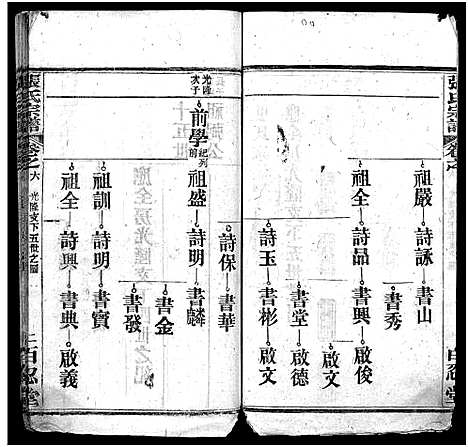 張氏宗譜
卷之
百忍堂
祖嚴 詩詠 書山
書秀
祖全 詩品 書興 啟俊
啟文
書堂 啟德
詩玉 書彬 啟文
詩保 書華
祖盛 詩明 書麟
光隆次子 前學 紀列前
書金
書發
祖訓 詩明 書寶
祖全 詩興 書典 啟義
張氏宗譜
卷之六 光隆支下五世之圖
百忍堂